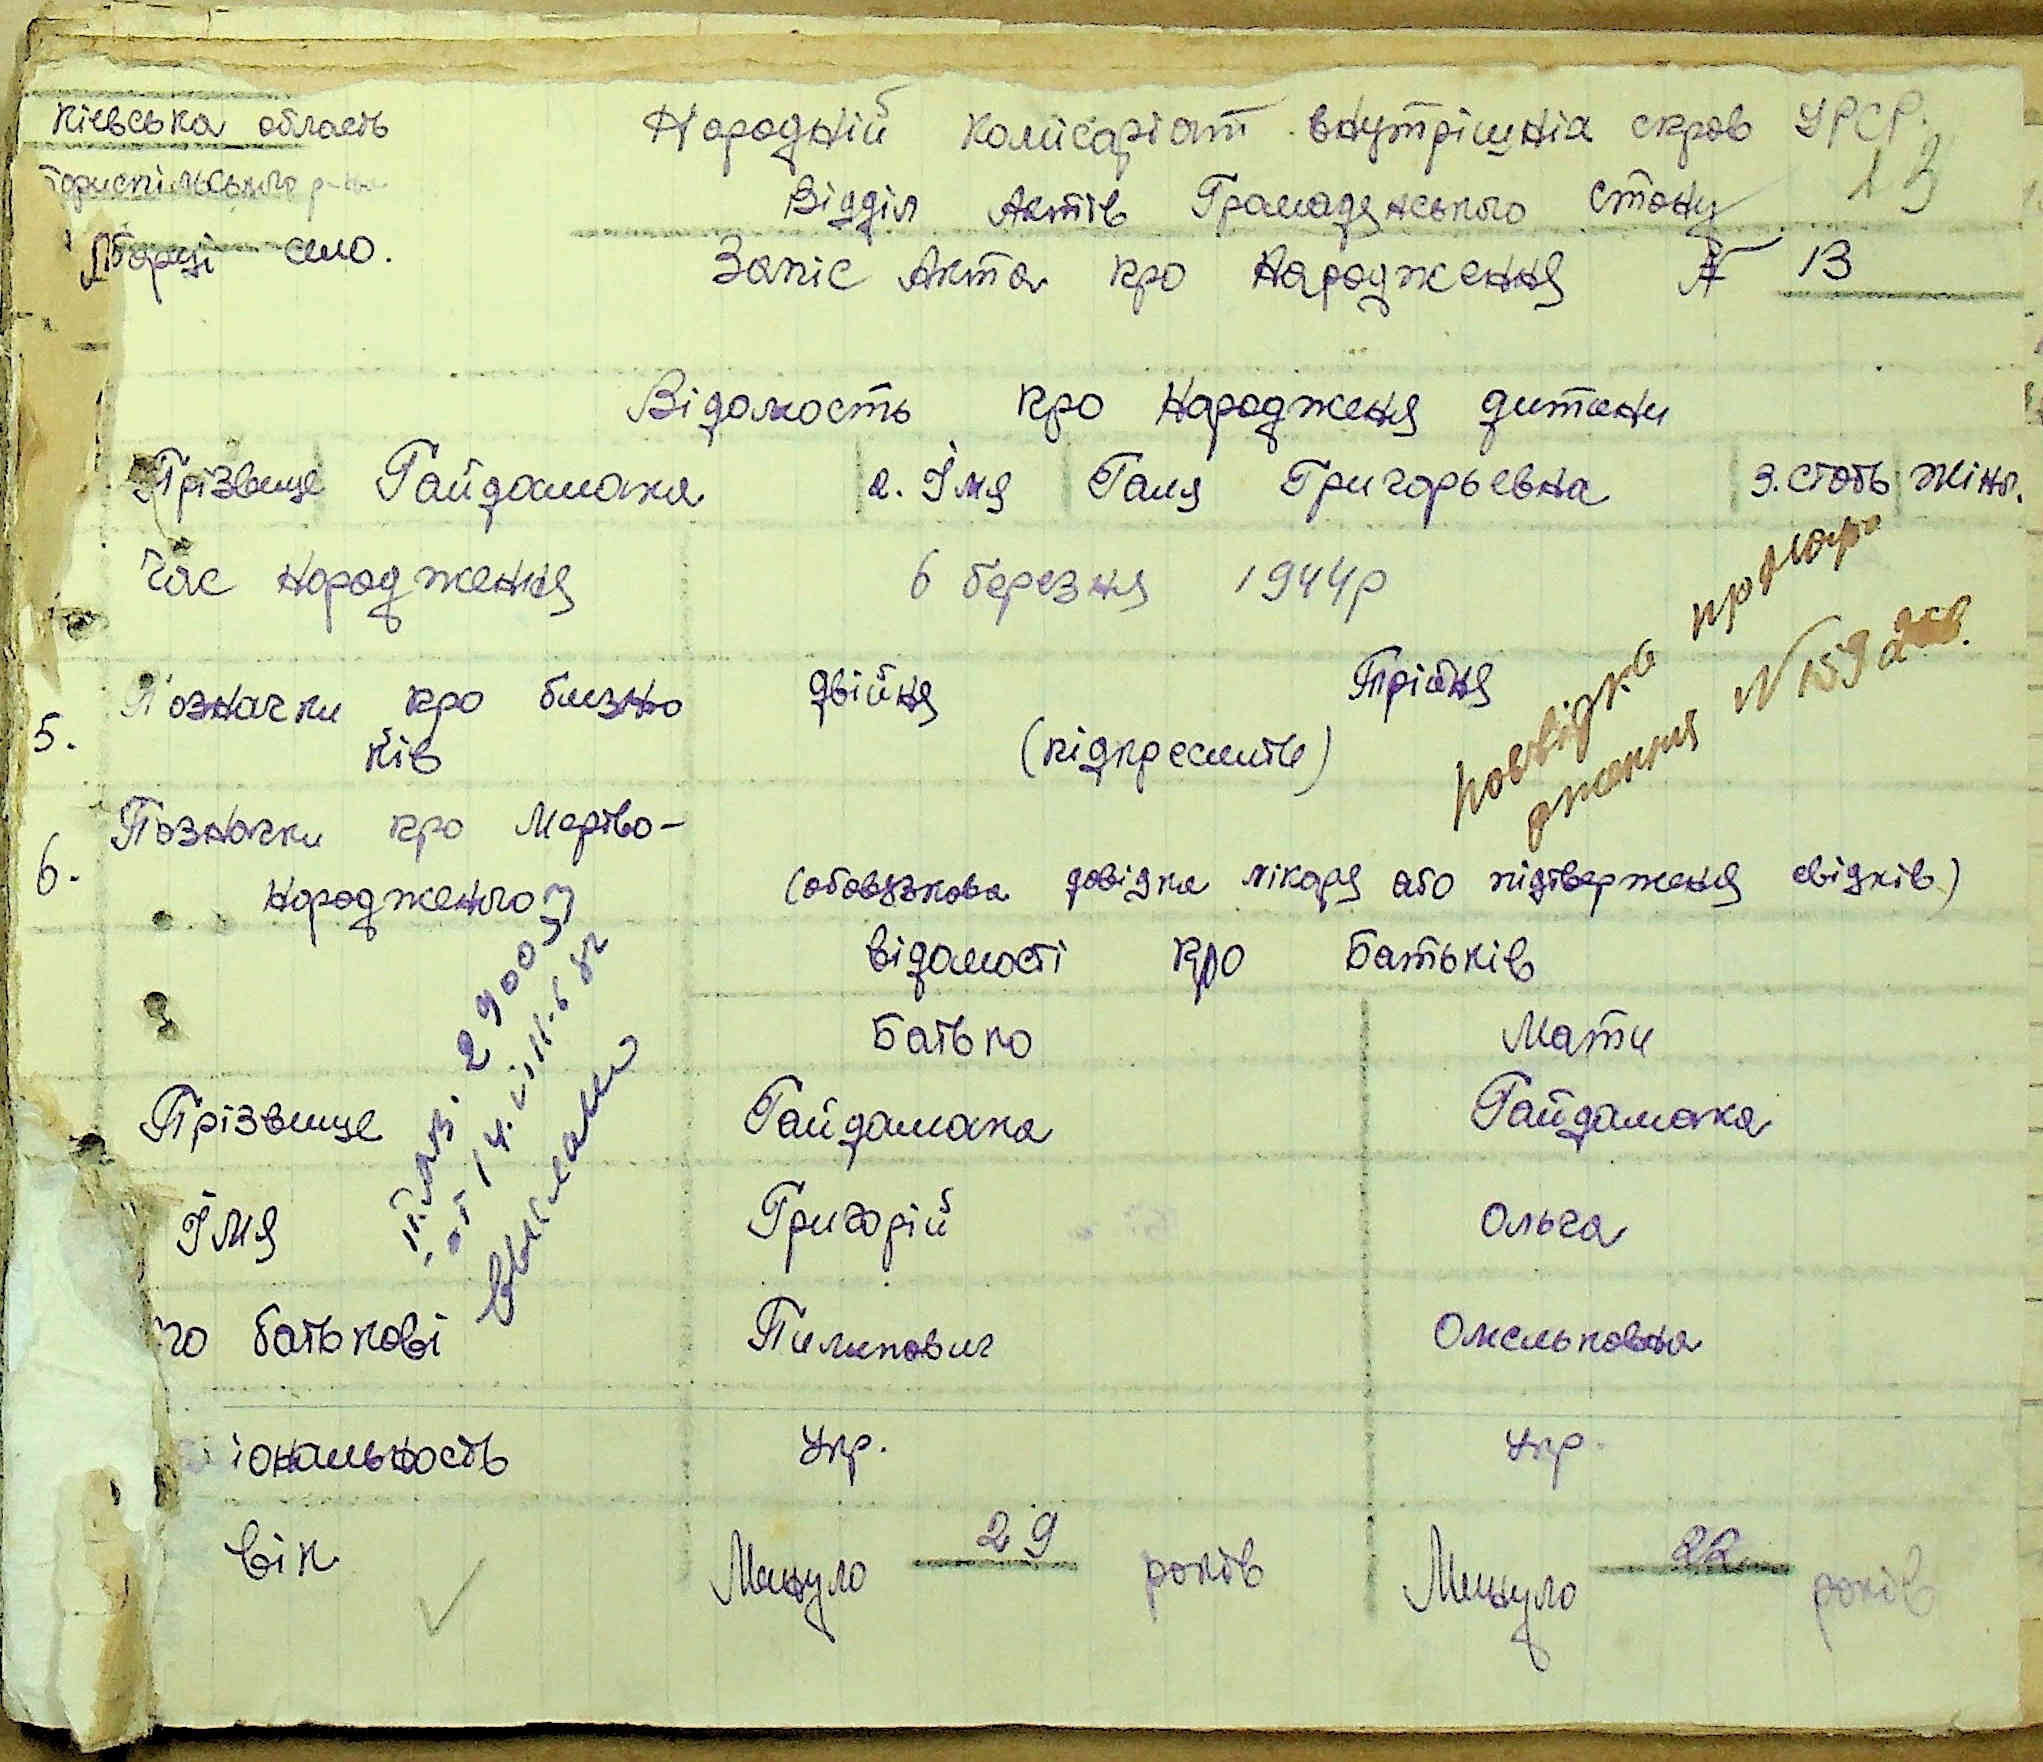 Кіевська область
Бориспільського р-ну
село.
Народній Комісаріат внутрішніх справ УРСР.
13
Відділ Актів Громадянського стану
Запіс Акта про Народження № 13
Відомость про Народженя дитини
Прізвище Гайдамака 2. Імя Галя Григорьевна 3. стать жіно.
Час народження 6 березня 1944р
5. Позначки про близню двійня Трійня
ків (підкреслить)
посвідка про народ
ження N 159 вид.
6. Позначки про Мертво-
Народженого (обовязкова довідка лікаря або підтверженя свідків)
29003
от 14.
выслано
відомості про Батьків
Батько Мати
Прізвище Гайдамака Гайдамака
Імя Григорій Ольга
го батькові Пилипович Омельковна
іональность укр. укр.
вік Минуло 29 років Минуло 22 років